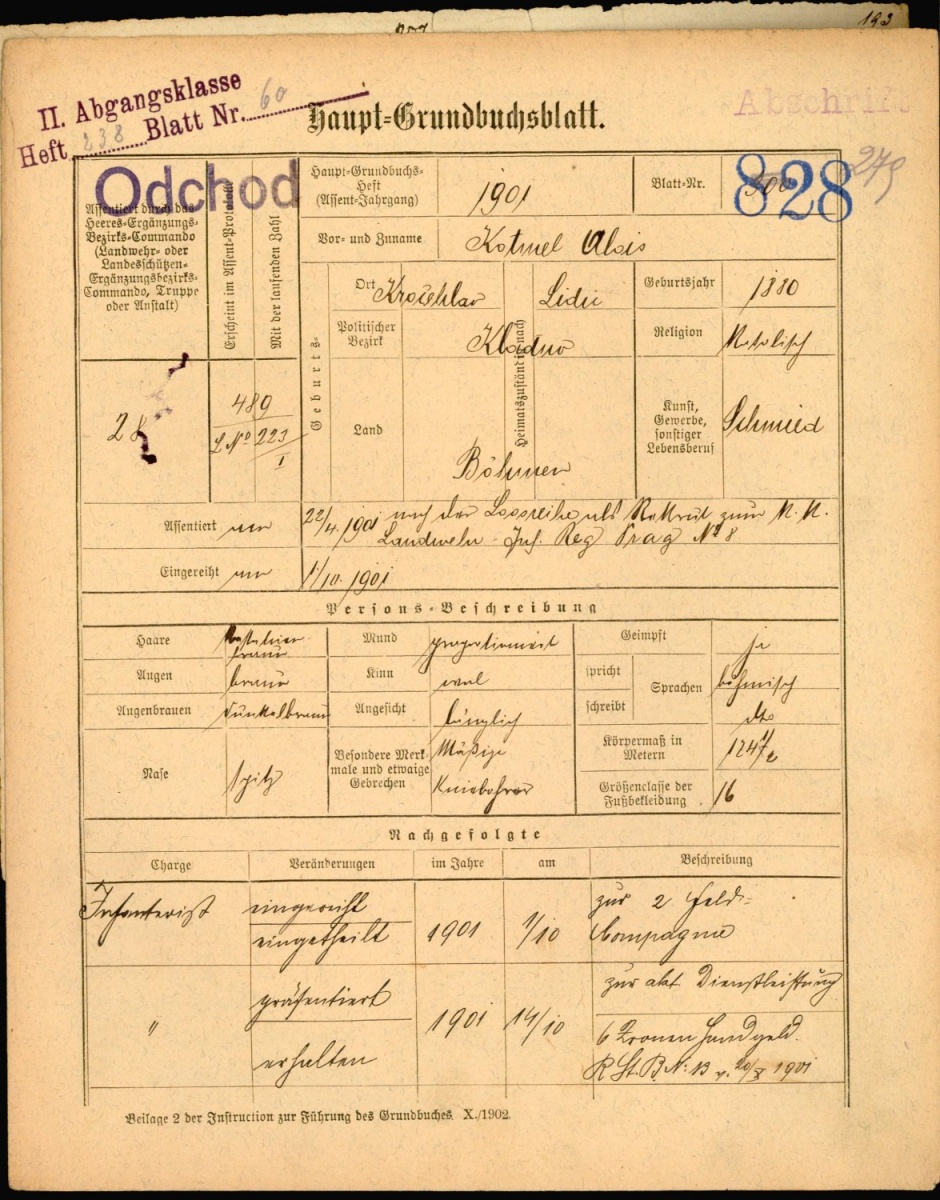 193
II. Abgangsklasse
Heft 238 Blatt Nr. 60
Haupt-Grundbuchsblatt.
Abschrift
Odchod
Assentiert durch das
Heeres-Ergänzungs-
Bezirks-Commando
(Landwehr- oder
Landesschützen-
Ergänzungsbezirks-
Commando, Truppe
oder Anstalt)
28
Erscheint im Assent-Protokoll
Mit der laufenden Zahl
489
L No 223
I
Haupt-Grundbuchs-
Heft
(Assent-Jahrgang)
1901
Blatt-Nr.
828
279
Vor- und Zuname
Kotmel Alois
Geburts-
Ort
Kročehlav
Heimatszuständig nach
Lidic
Politischer
Bezirk
Kladno
Land
Böhmen
Geburtsjahr
1880
Religion
Katolisch
Kunst,
Gewerbe,
sonstiger
Lebensberuf
Schmied
Assentiert am
22/4. 1901 nach der Losreihe als Rekrut zum K. K.
Landwehr Inf. Reg Prag No 8
Eingereiht am
1/10. 1901
Persons-Beschreibung
Haare
Kastanien-
braun
Augen
braun
Augenbrauen
dunkelbraun
Nase
spitz
Mund
proportioniert
Kinn
oval
Angesicht
länglich
Besondere Merk-
male und etwaige
Gebrechen
Mäßige
Kniebohrer
Geimpft
ja
spricht
schreibt
Sprachen
böhmisch
dto
Körpermaß in
Metern
Größenclasse der
Fußbekleidung
16
Nachgefolgte
Charge Veränderungen im Jahre am Beschreibung
Infanterist
eingereiht
eingetheilt
1901 1/10
zur 2 Feld-
Compagnie
"
präsentiert
erhalten
1901 14/10
zur akt Dienstleistung
6 Kronen Handgeld.
R St. B. N: 13 v. 20/X 1901
Beilage 2 der Instruction zur Führung des Grundbuches X./1902.